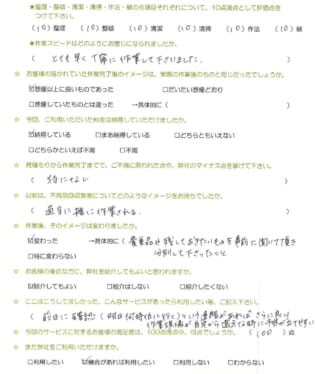 ★整理・整頓・清潔・清掃・作法・躾の6項目それぞれについて、10点満点として評価点を
つけて下さい。
(10)整理 (10)整頓 (10)清潔 (10)清掃 (10)作法 (10)躾
★作業スピードはどのようにお感じになられましたか。
( とても早く丁寧に作業して下さいました。 )
☆ お客様の描かれていた作業完了後のイメージは、実際の作業後のものと同じだったでしょうか。
☑想像以上に良いものであった □だいたい想像どおり
□想像していたものとは違った →具体的に( )
☆ 今回、ご利用いただいた料金は納得していただけましたか。
☑納得している □まあ納得している □どちらともいえない
□どちらかといえば不満 □不満
☆ 見積もりから作業完了までで、ご不満に思われた点や、弊社のマイナス点を挙げて下さい。
( 特になし )
☆ 以前は、不用品回収業者についてどのようなイメージをお持ちでしたか。
( 適当に雑に作業される。 )
☆ 作業後、そのイメージは変わりましたか。
☑変わった →具体的に( 貴重品や残しておきたいものを事前に聞いて頂き
□特に変わらない 分別して下さったこと )
☆ お客様の身近な方に、弊社を紹介してもよいと思われますか。
☑紹介してもよい □紹介はしない □紹介したくない
☆ ここはこうしてほしかった、こんなサービスがあったら利用したい等、ご記入下さい。
( 前日に確認(明日何時頃に行く)という連絡があれば、さらに良い
作業現場が自宅から遠方な時に予定が立てやすい )
☆ 今回のサービスに対するお客様の満足度は、100点満点中、何点でしょうか。 (100)点
☆ また弊社をご利用いただけますか。
□利用したい ☑機会があれば利用したい □利用しない □わからない